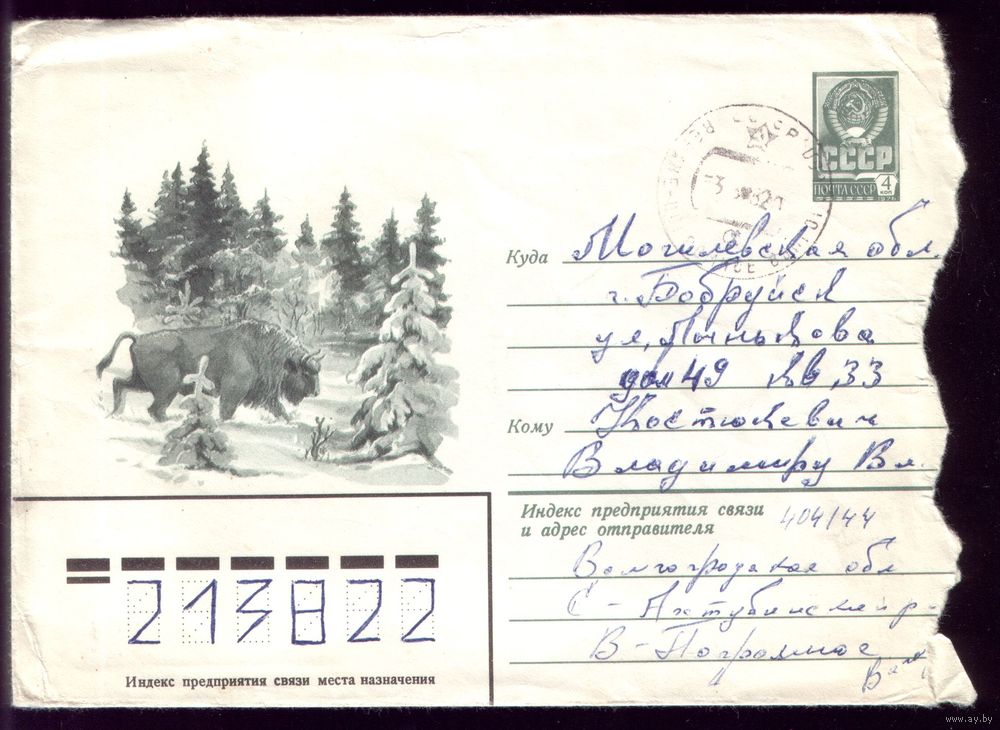 СССР
ПОЧТА СССР 4 коп
Куда Могилевская обл.
г. Бобруйск
ул.
дом 49 кв 33
Кому Костюкевич
Владимиру Вл.
Индекс предприятия связи
и адрес отправителя 404144
Волгоградская обл
С-Ахтубинский р-
В-Погромное
213822
Индекс предприятия связи места назначения
www.ay.by